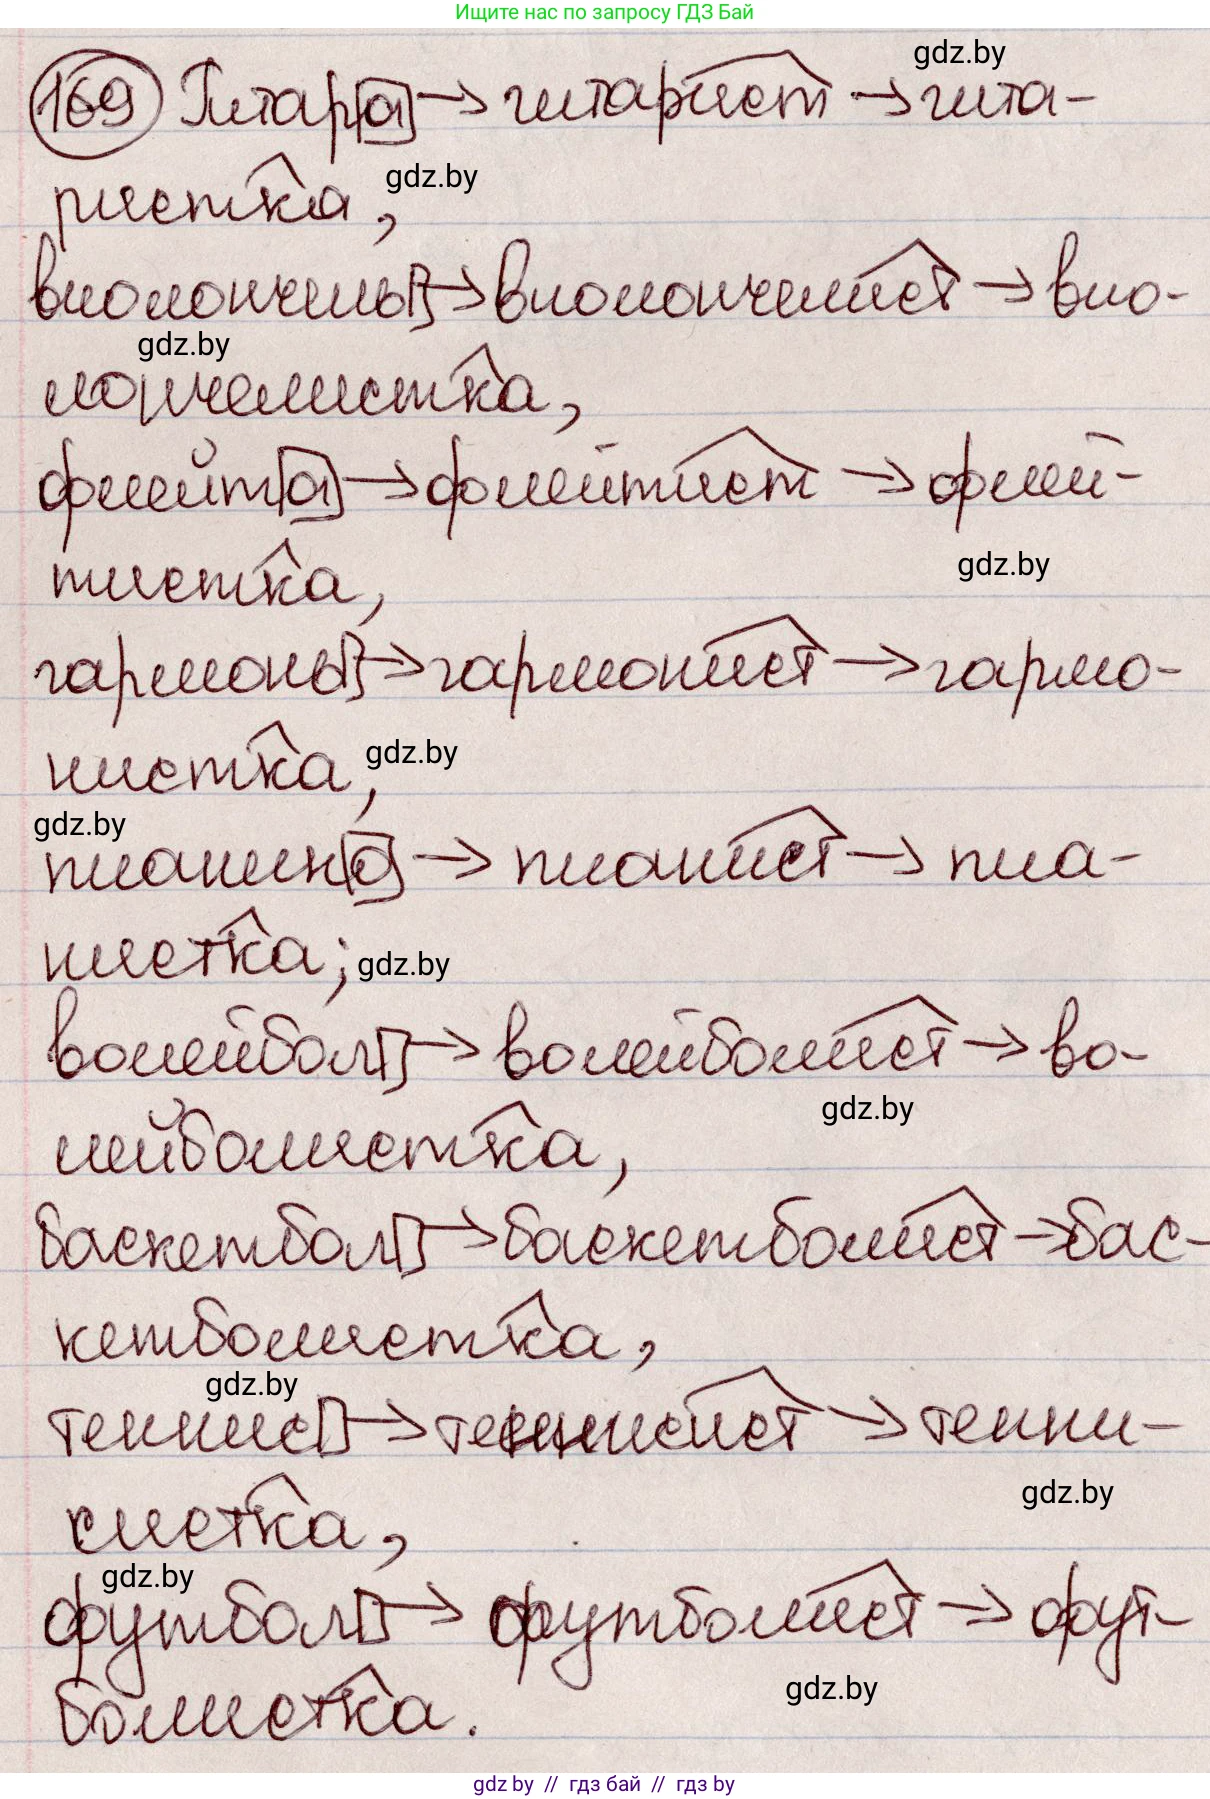 Ищите нас по запросу ГДЗ Бай
gdz.by
169 Гитара → гитарист → гита-
gdz.by
ристка,
виолончель → виолончелист → вио-
gdz.by
лончелистка,
флейта → флейтист → флей-
gdz.by
тистка,
гармонь → гармонист → гармо-
нистка, gdz.by
gdz.by
пианино → пианист → пиа-
нистка; gdz.by
волейбол → волейболист → во-
gdz.by
лейболистка,
баскетбол → баскетболист → бас-
кетболистка,
gdz.by
теннис → теннисист → тенни-
gdz.by
систка,
gdz.by
футбол → футболист → фут-
gdz.by
болистка.
gdz by // гдз бай // гдз by